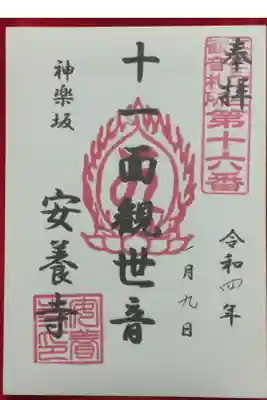 奉拝
第十六番
令和四年
一月九日
十一面観世音
神楽坂
安養寺